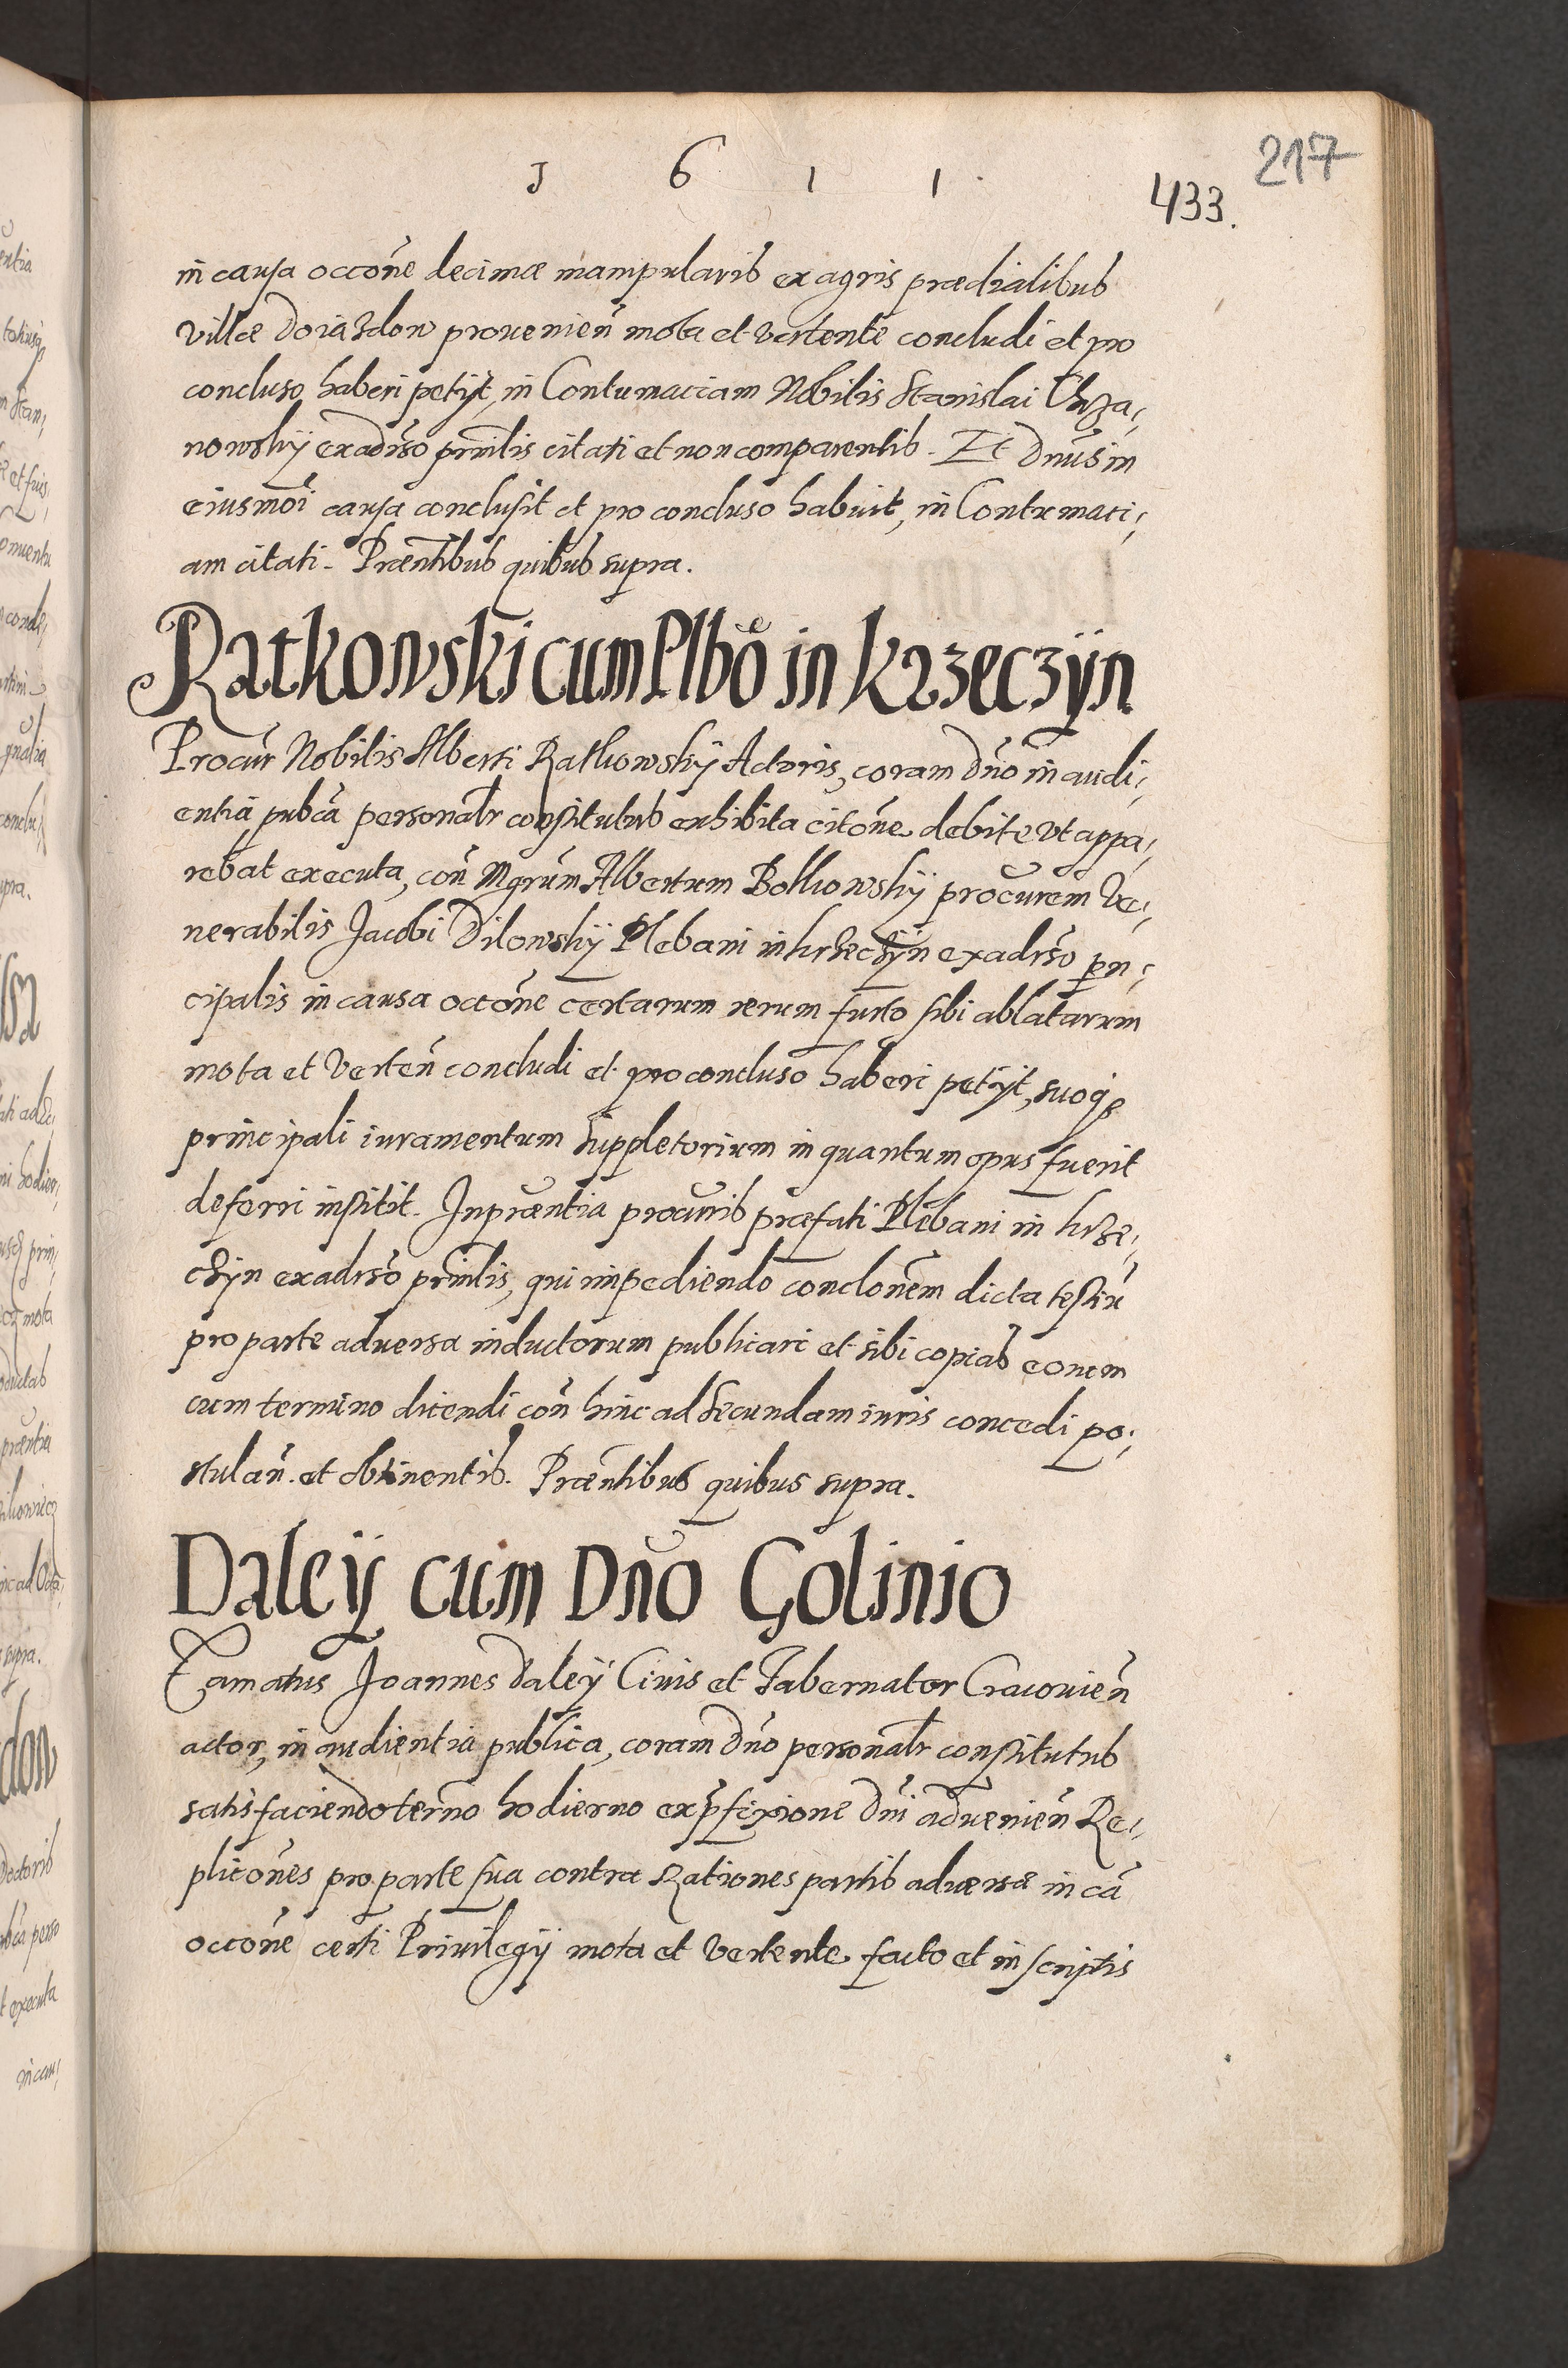 1 6 1 1
217
433.
in causa occõne decimæ manipularis ex agris prædialibus
villæ Doiazdow prouenieñ mota et vertente concludi et pro
concluso haberi petijt, in Contumaciam Nobilis Stanislai Chrza,
nowskij exadũso prinlis citati et non comparentis. Et Dnũs in
eiusmõi causa conclusit et pro concluso habuit, in Contumaci,
am citati. Præntibus quibus supra.
Ratkowski cum Plbõ in Krzeczÿn
Procur̃ Nobilis Alberti Ratkowskÿ Actoris, coram Dño in audi,
entia pubcã personalr constitutus exhibita citõne debite vt appa,
rebat executa, coñ Mgrũm Albertum Bolkowskÿ procurẽm Ve,
nerabilis Jacobi Dilowskÿ Plebani in krzeczÿn exadrso prin,
cipalis in causa occõne certarum rerum furto sibi ablatarum
mota et verteñ concludi et pro concluso haberi petijt, suoq3
principali iuramentum suppletorium in quantum opus fuerit
deferri institit. In præntia procuris præfati Plebani in krze,
czÿn exadrsõ prinlis, qui impediendo conclonẽm dicta testiũ
pro parte aduersa inductorum publicari et sibi copias eorum
cum termino dicendi coñ hinc ad secundam iuris concedi po,
stulañ. et obtinentis. Præntibus quibus supra.
Daleÿ cum Dño Golinio
Famatus Joannes Daleÿ Ciuis et Tabernator Cracouieñ
actor, in audientia publica, coram Dño personalr constitutus
satisfaciendo termo hodierno ex pfixione Dñi aduenieñ Re,
plicoñes pro parte sua contra Rationes partis aduersæ in cã
occõne certi Priuilegij mota et vertente facto et in scriptis